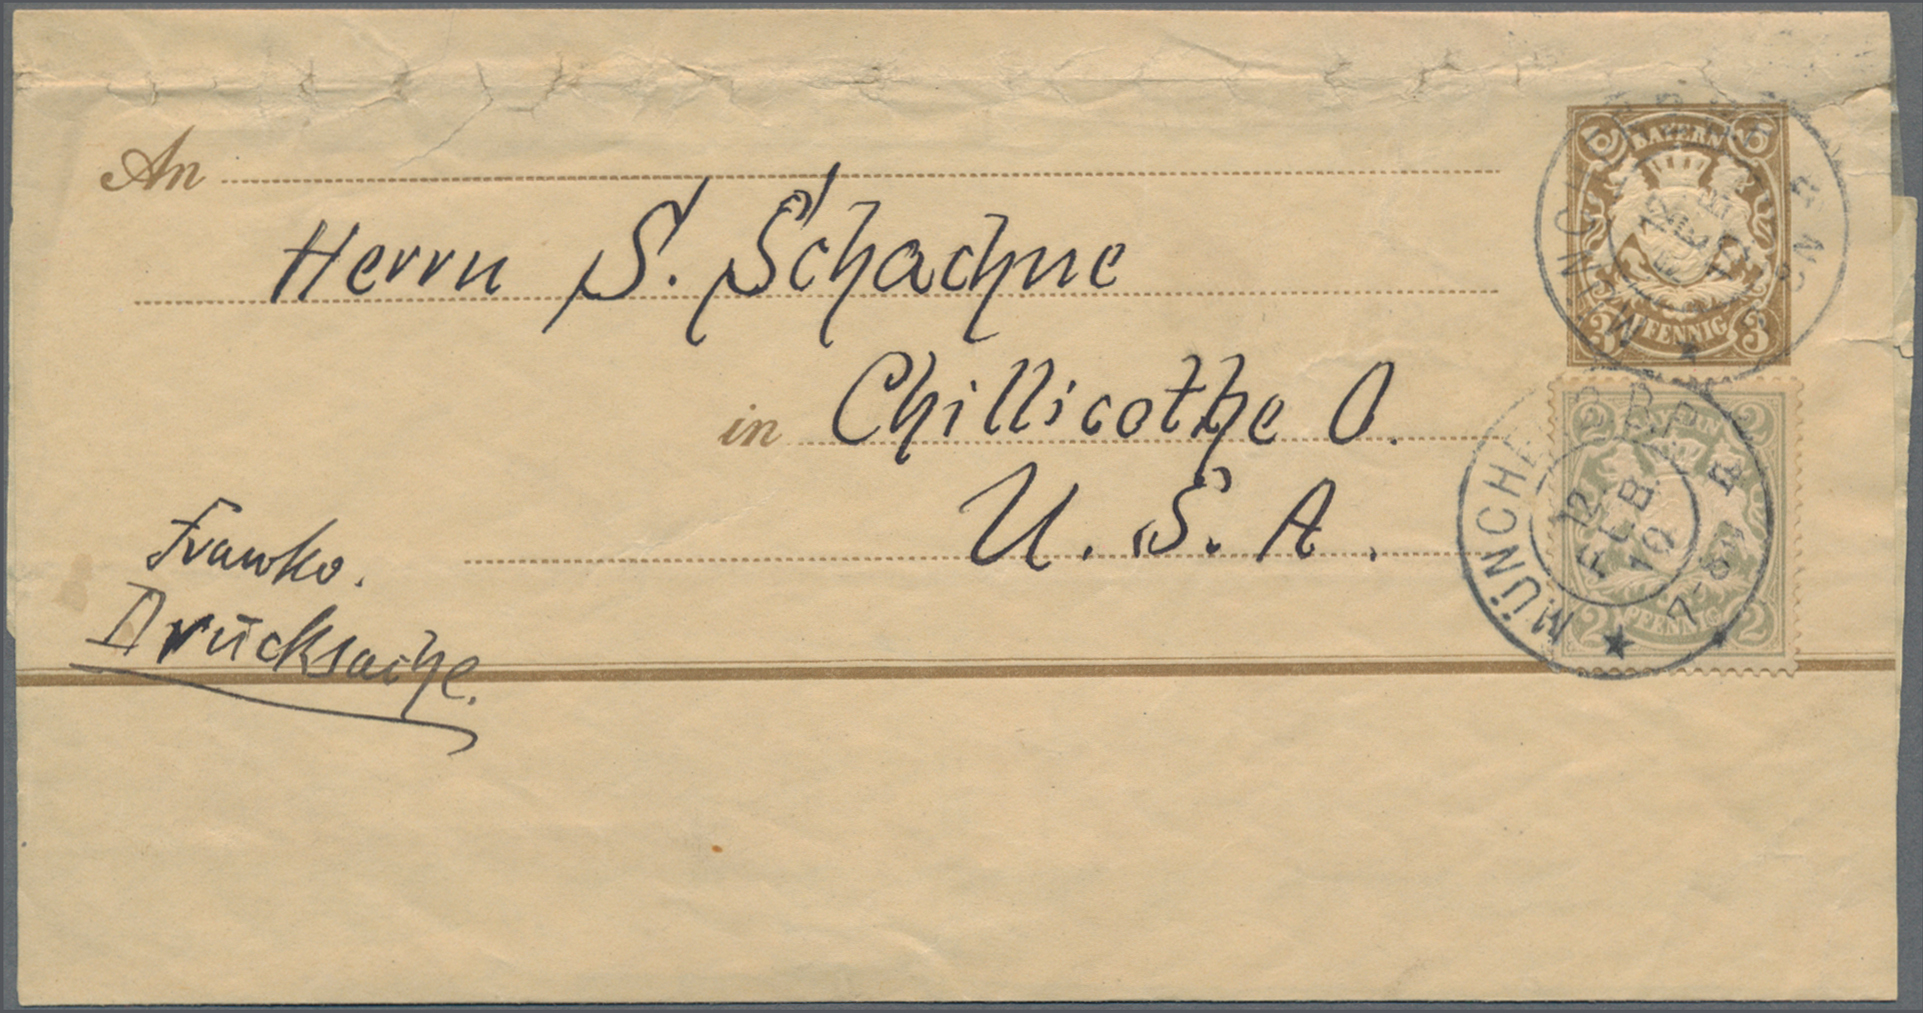 An
Herrn S. Schachne
in Chillicothe O.
U. S. A.
Franko.
Drucksache.
BAYERN
3 3
PFENNIG
MÜNCHEN
12
BAYERN
2 2
2 2
PFENNIG
MÜNCHEN
12
FEB.
7-8